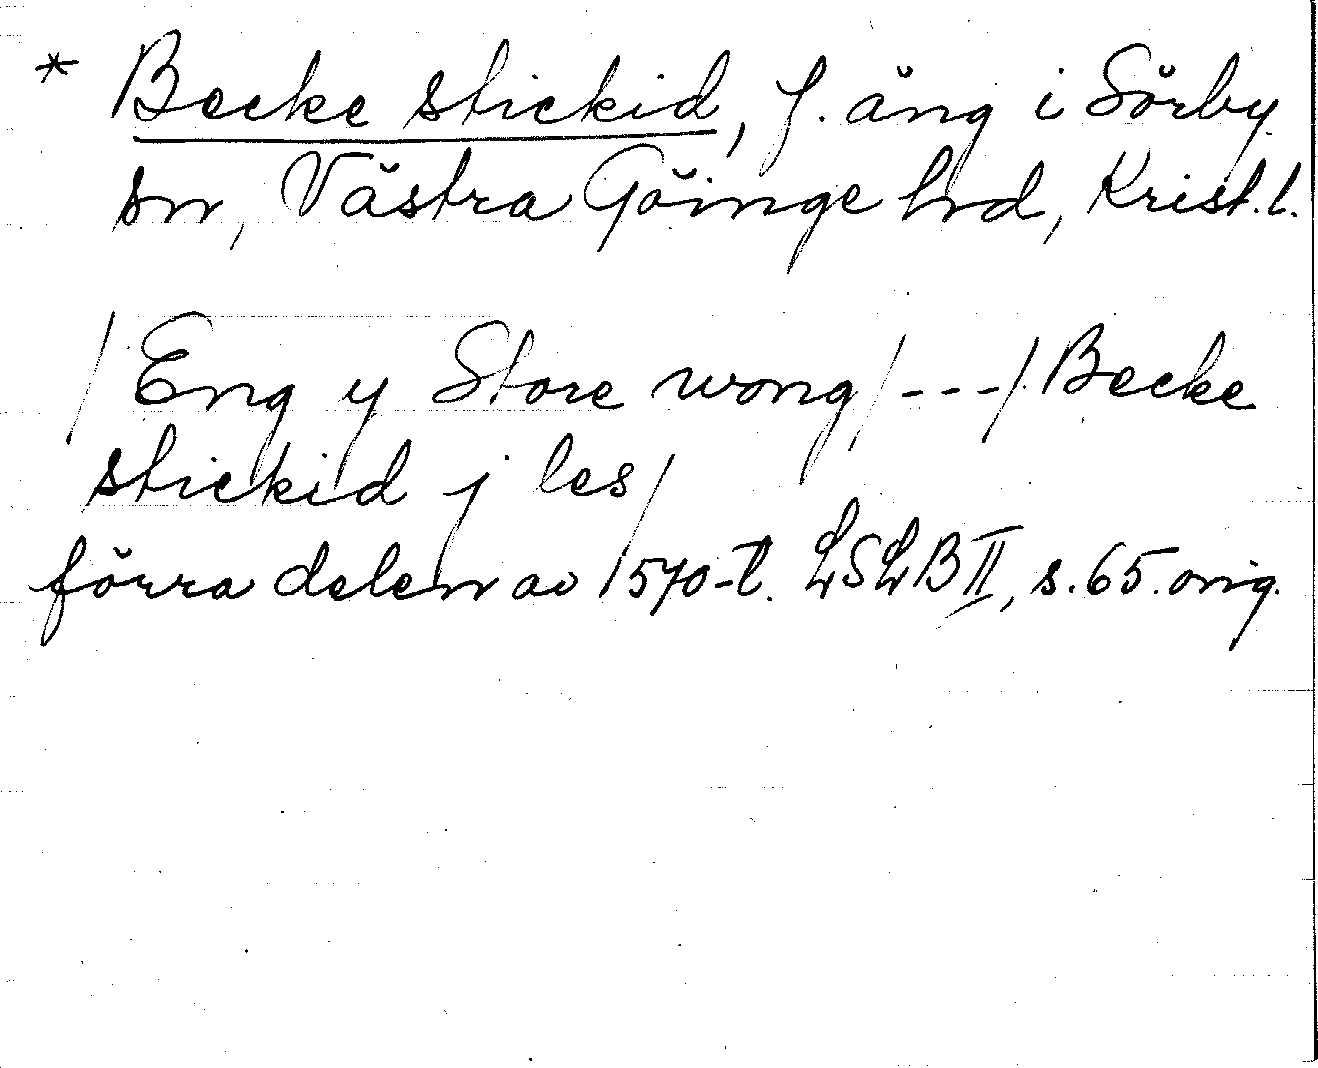 * Becke stickid, f. äng i Sörby
sn, Västra Göinge hrd, Krist.l.
/Eng y Store wong/---/Becke
stickid j les/
förra delen av 1570-t. LSLB II, s.65.orig.